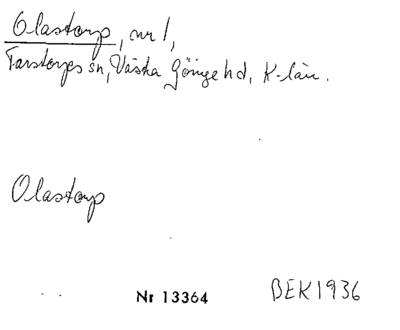 Olastorp, nr 1,
Farstorps sn, Västra Göinge hd, K-län.
Olastorp
Nr 13364 BEK1936